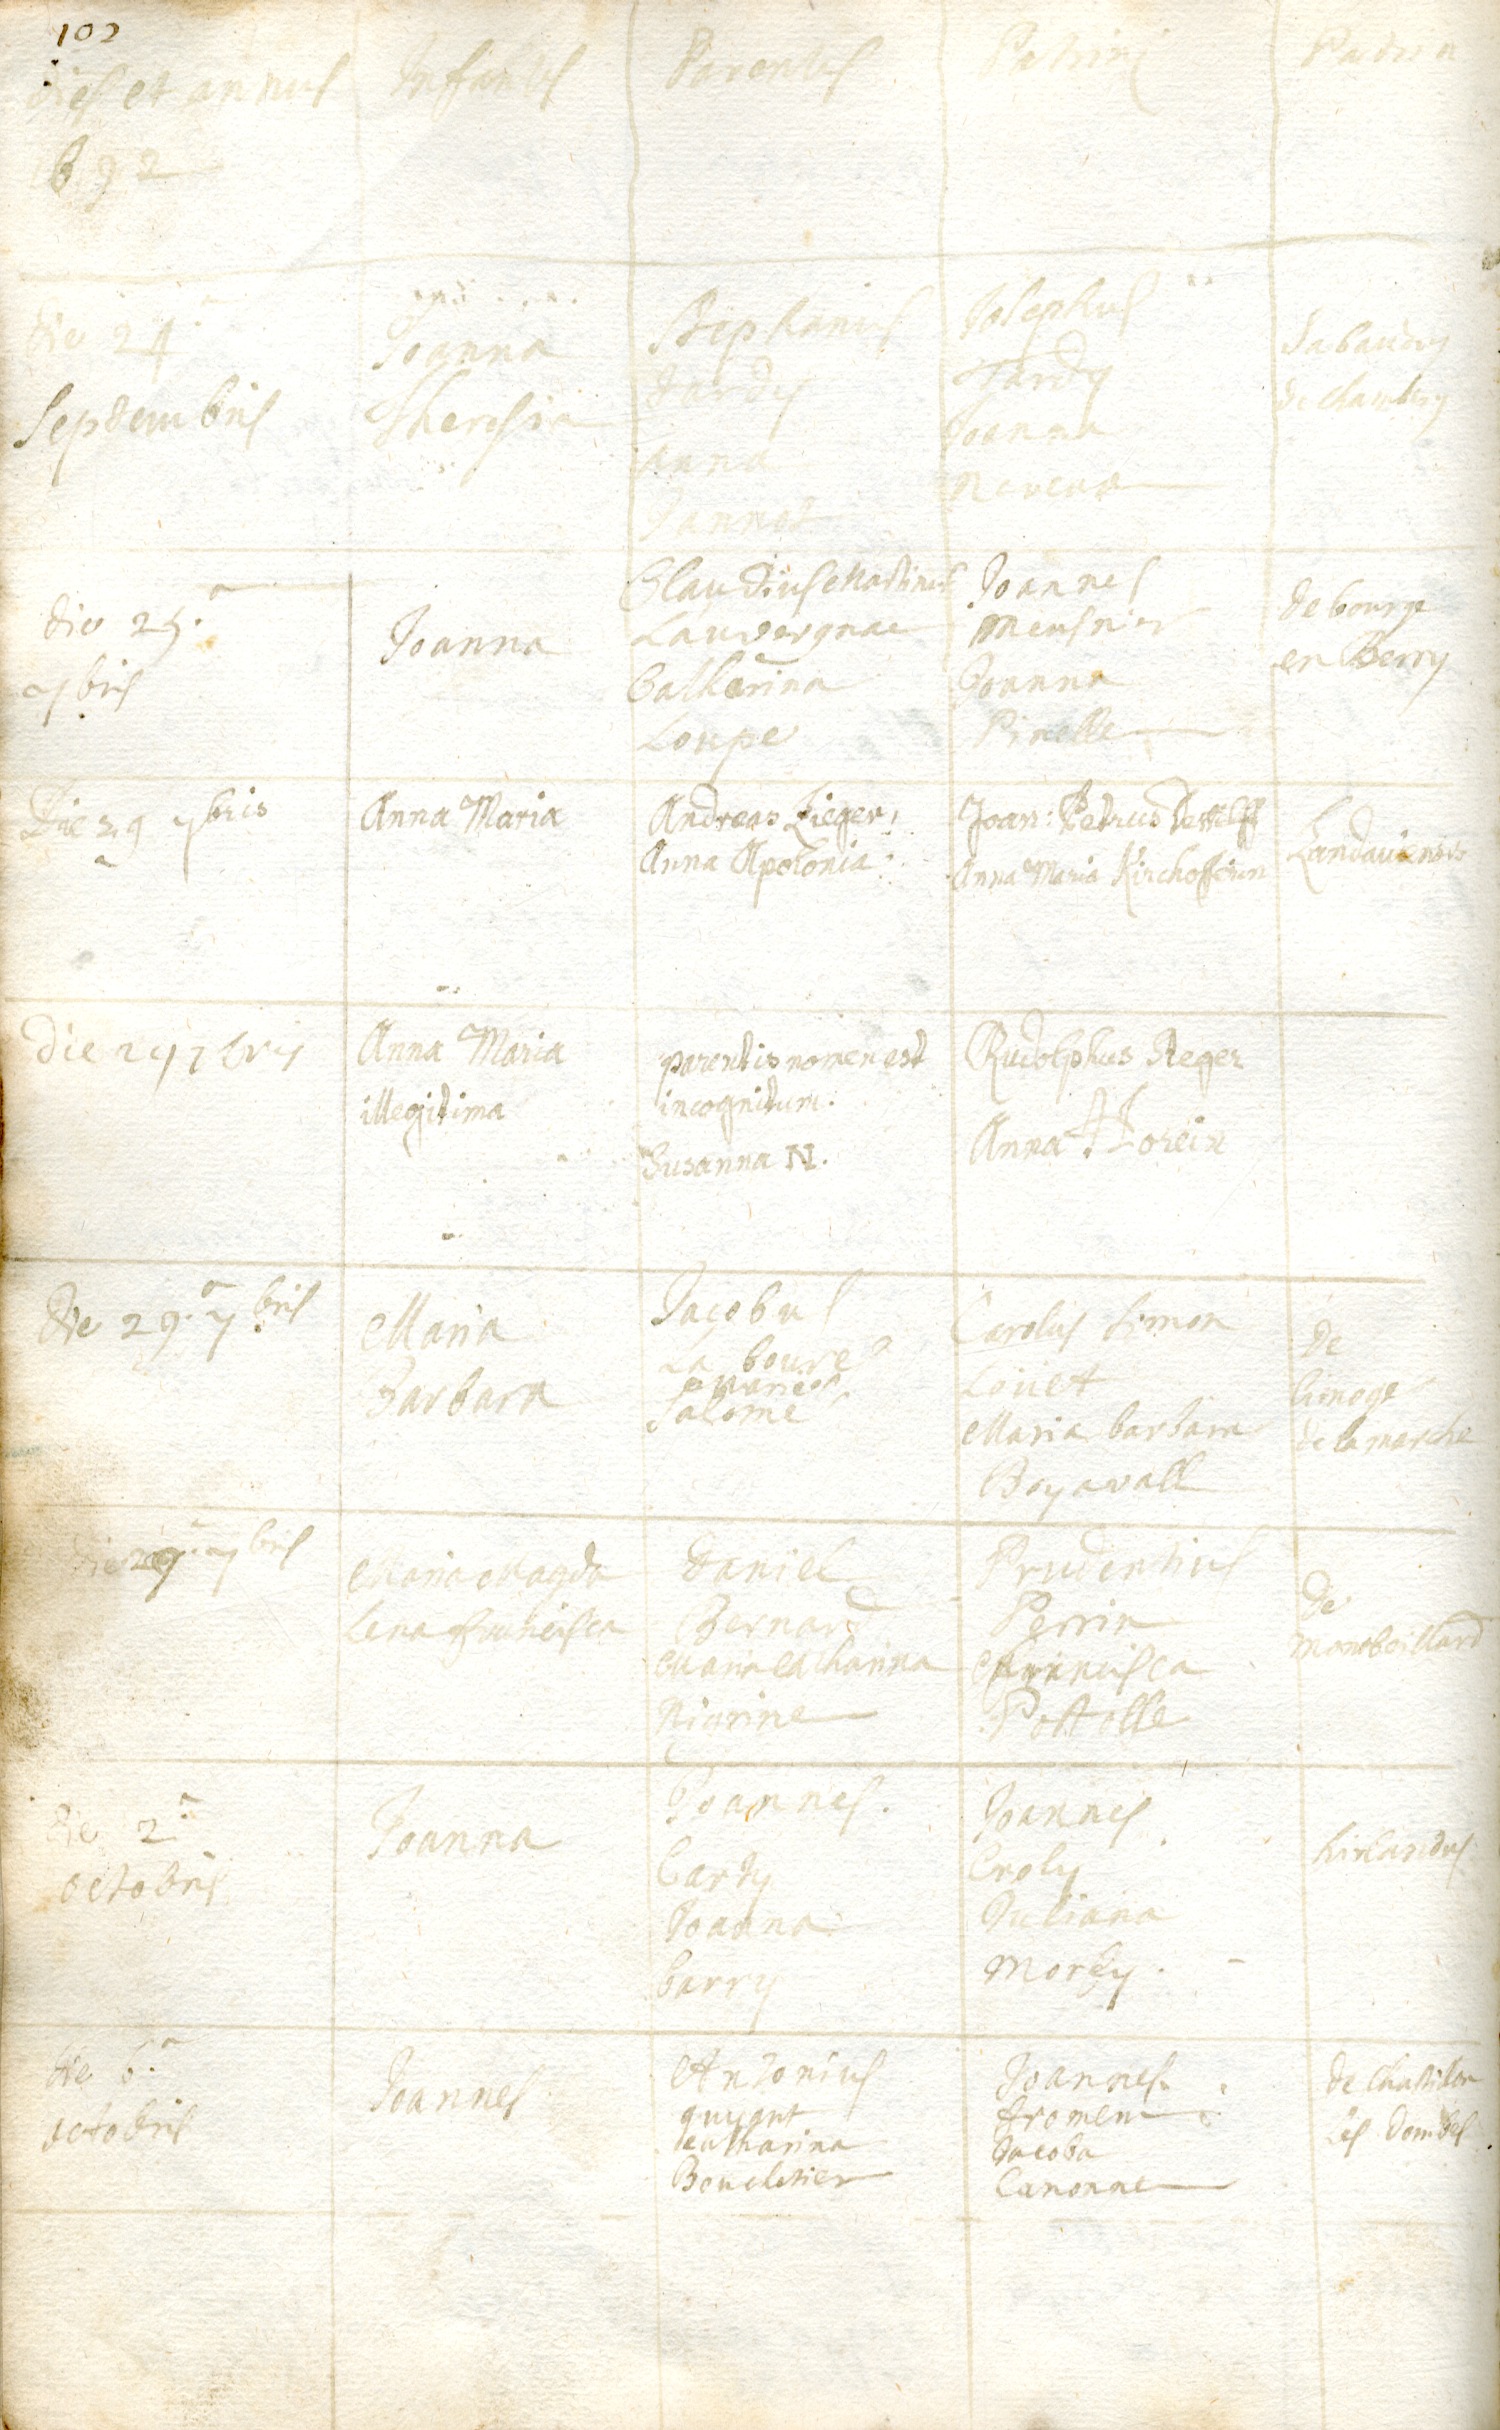 102
dies et annus
Infantes
Parentes
Patrini
Patri
692
die 24.a
Septembris
Joanna
Theresia
Stephanus
Tardy
Anna
Jannot
Josephus
Tardy
Joanna
Sabaudus
de Chambery
die 25.a
7bris
Joanna
Claudius Martinus
Lauvergnac
Catharina
Loupe
Joannes
Meusnier
Joanna
Pinelle
de bourge
en Berry
Die 29 7bris
Anna Maria
Andreas Zieger,
Anna Apolonia.
Joan: Petrus
Anna Maria Kirchofferin
Landaviensis
Die 29 7bris
Anna Maria
illegitima
parentis nomen est
incognitum.
Susanna N.
Rudolphus Reger
Anna
die 29.a 7bris
Maria
Barbara
Jacobus
La boure
Marie
Salome
Carolus Simon
Loüet
Maria barbara
Boyavall
de
limoge
de la marche
die 29 7bris
Maria Magda
lena Francisca
Daniel
Bernard
Maria Catharina
Prudentius
Perrin
Francisca
Pottelle
de
Montbeillard
die 2.a
octobris
Joanna
Joannes.
Carty
Joanna
barry
Joannes
Croly
Juliana
Morky.
hirlandus
die 6.a
octobris
Joannes
Antonius
guyant
Catharina
Bouchetier
Joannes
froment
Jacoba
Canonne
de Chastillon
Les Dombes